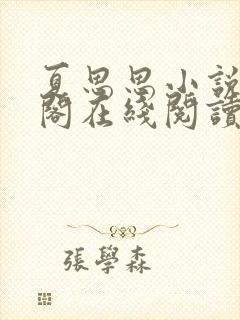 夏思思小說
閣在綫閱讀
張學森